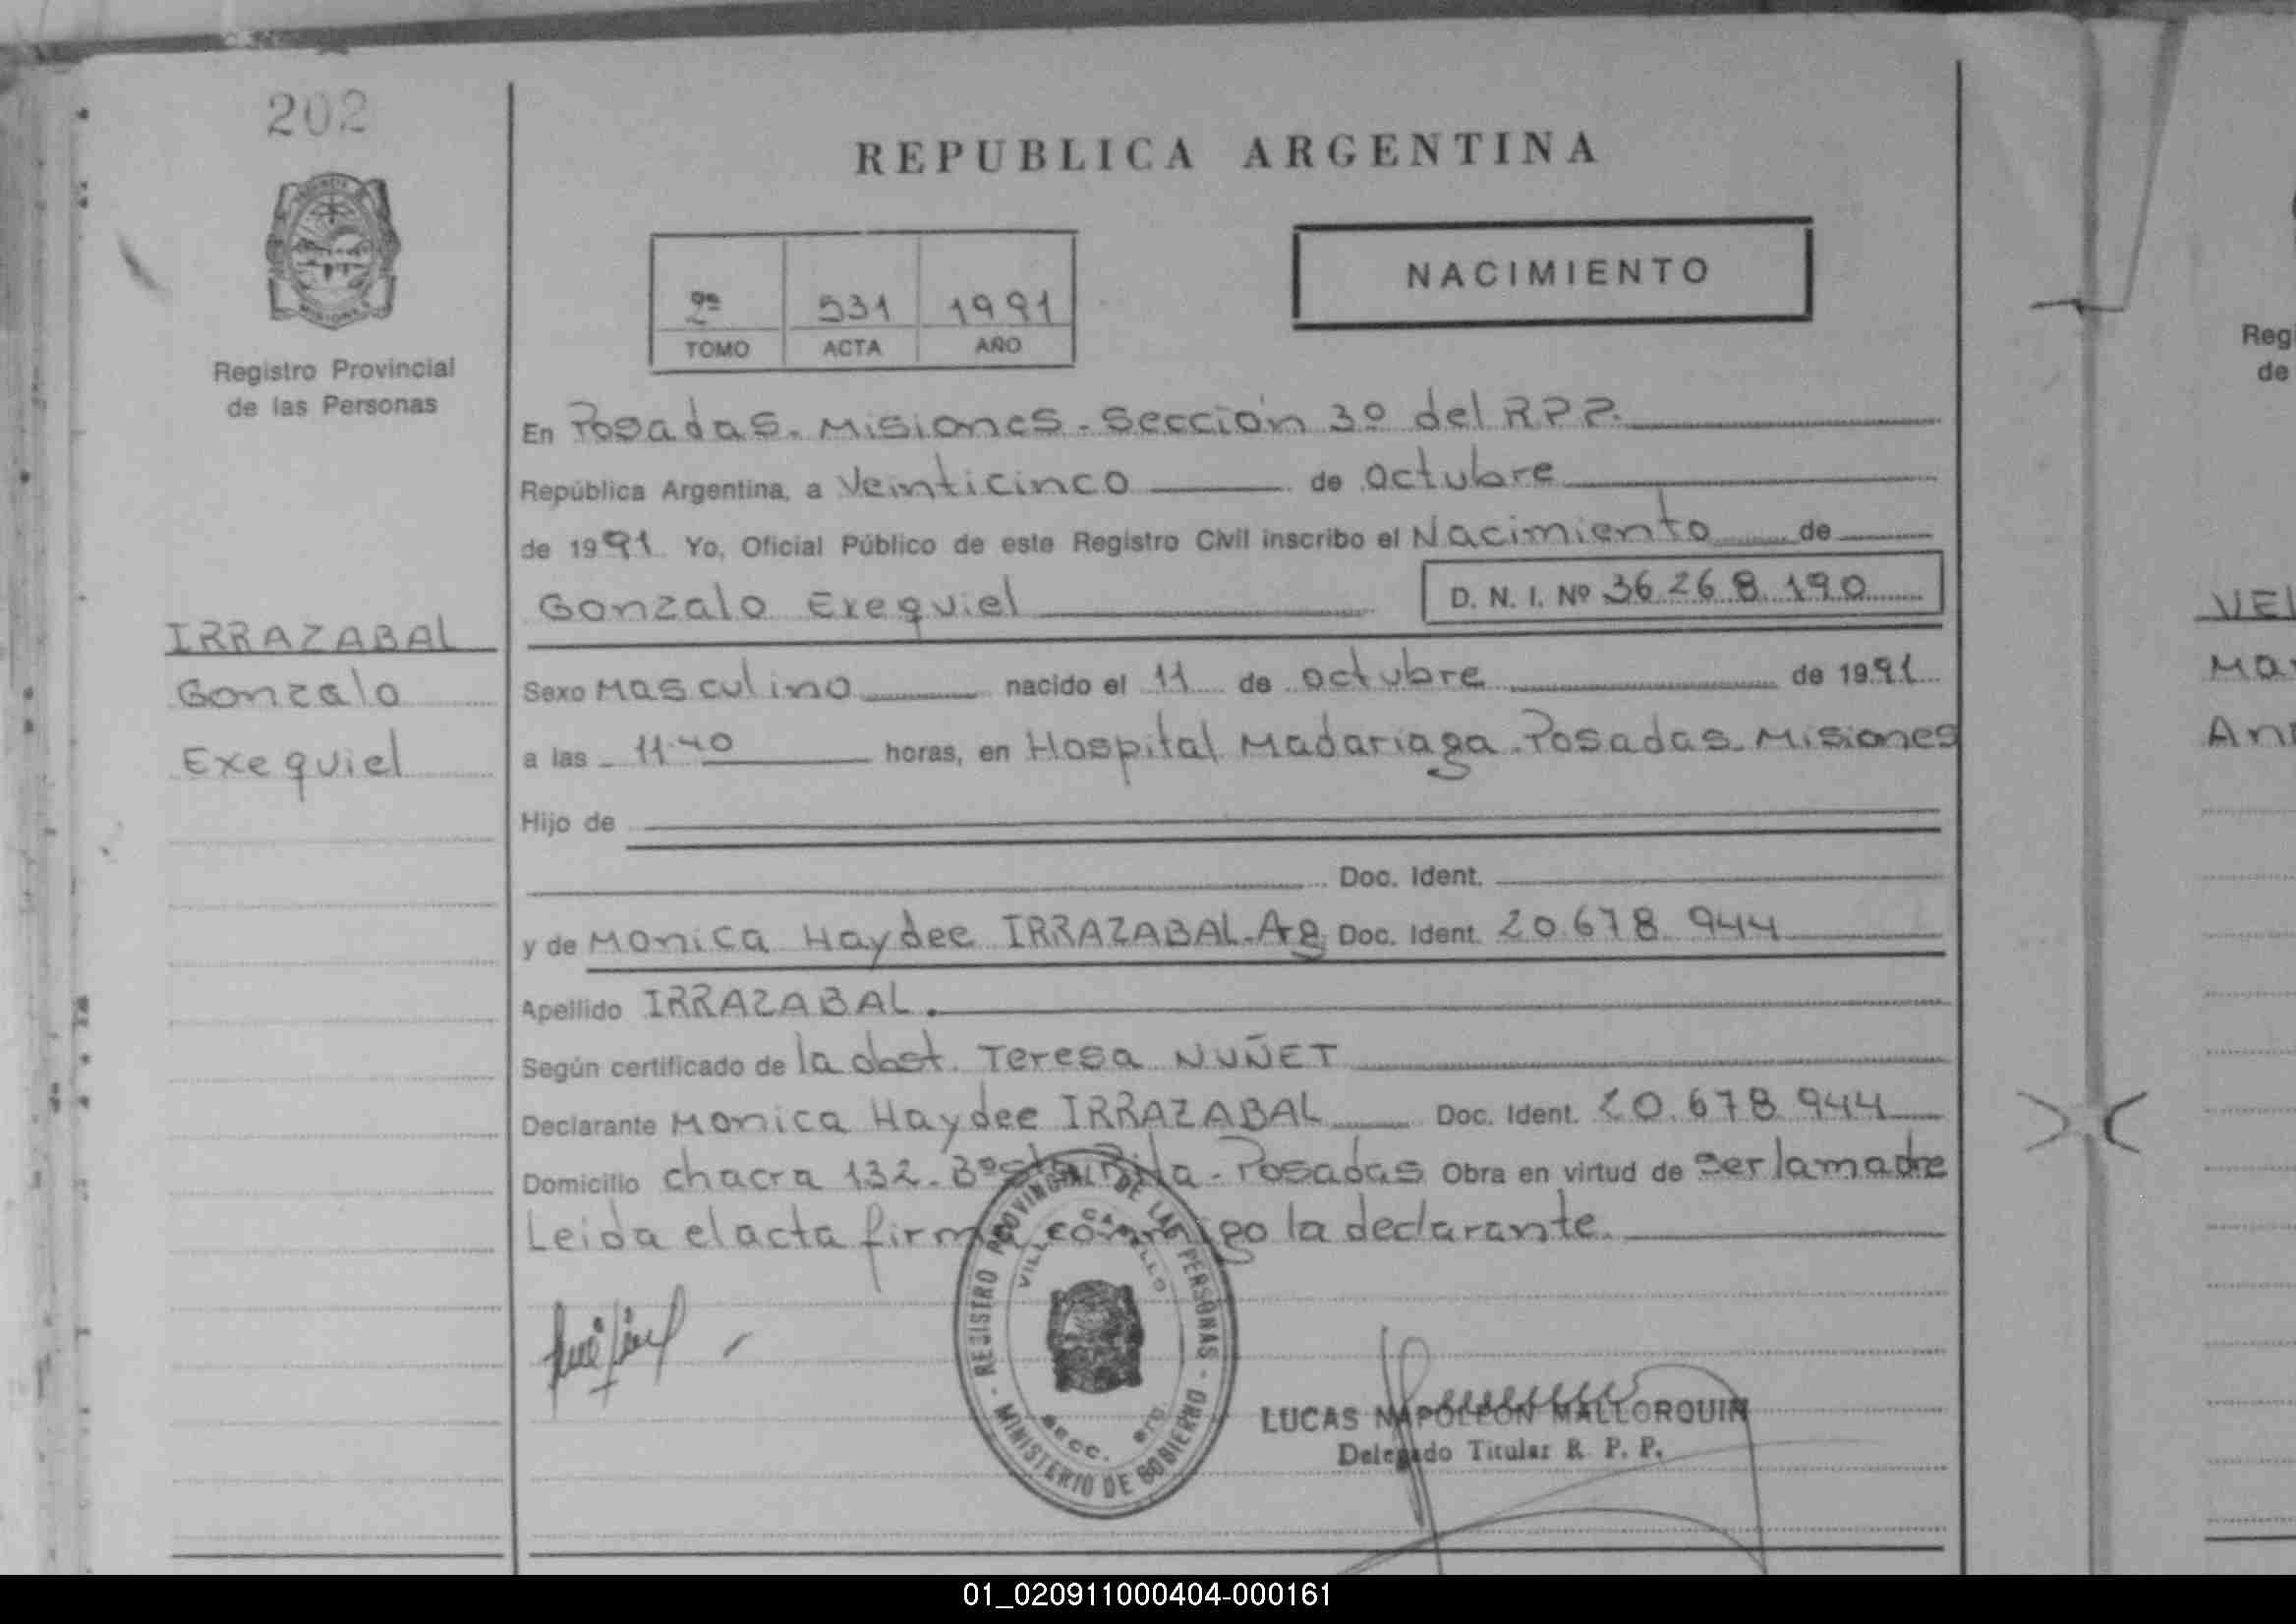 202
REPUBLICA ARGENTINA
NACIMIENTO
2º 531 1991
TOMO ACTA AÑO
Registro Provincial
de las Personas
En Posadas. Misiones. Sección 3º del RPP.
República Argentina, a Veinticinco de octubre
de 1991 Yo, Oficial Público de este Registro Civil inscribo el Nacimiento de
Gonzalo Exequiel D. N. I. Nº 36.268.190
IRRAZABAL
Gonzalo
Exequiel
Sexo Masculino nacido el 11 de octubre de 1991
a las 11.40 horas, en Hospital Madariaga. Posadas. Misiones
Hijo de
Doc. Ident.
y de Monica Haydee IRRAZABAL. Arg Doc. Ident. 20.678.944
Apellido IRRAZABAL.
Según certificado de la obst. Teresa NUÑET
Declarante Monica Haydee IRRAZABAL Doc. Ident. 20.678.944
Domicilio chacra 132. Bº Sta Rita. Posadas Obra en virtud de ser la madre
Leida el acta firma conmigo la declarante.
REGISTRO PROVINCIAL DE LAS PERSONAS - MINISTERIO DE GOBIERNO -
VILLA CABELLO
SECC.
LUCAS NAPOLEON MALLORQUIN
Delegado Titular R. P. P.
Reg
de
VEL
Ma
An
01_020911000404-000161